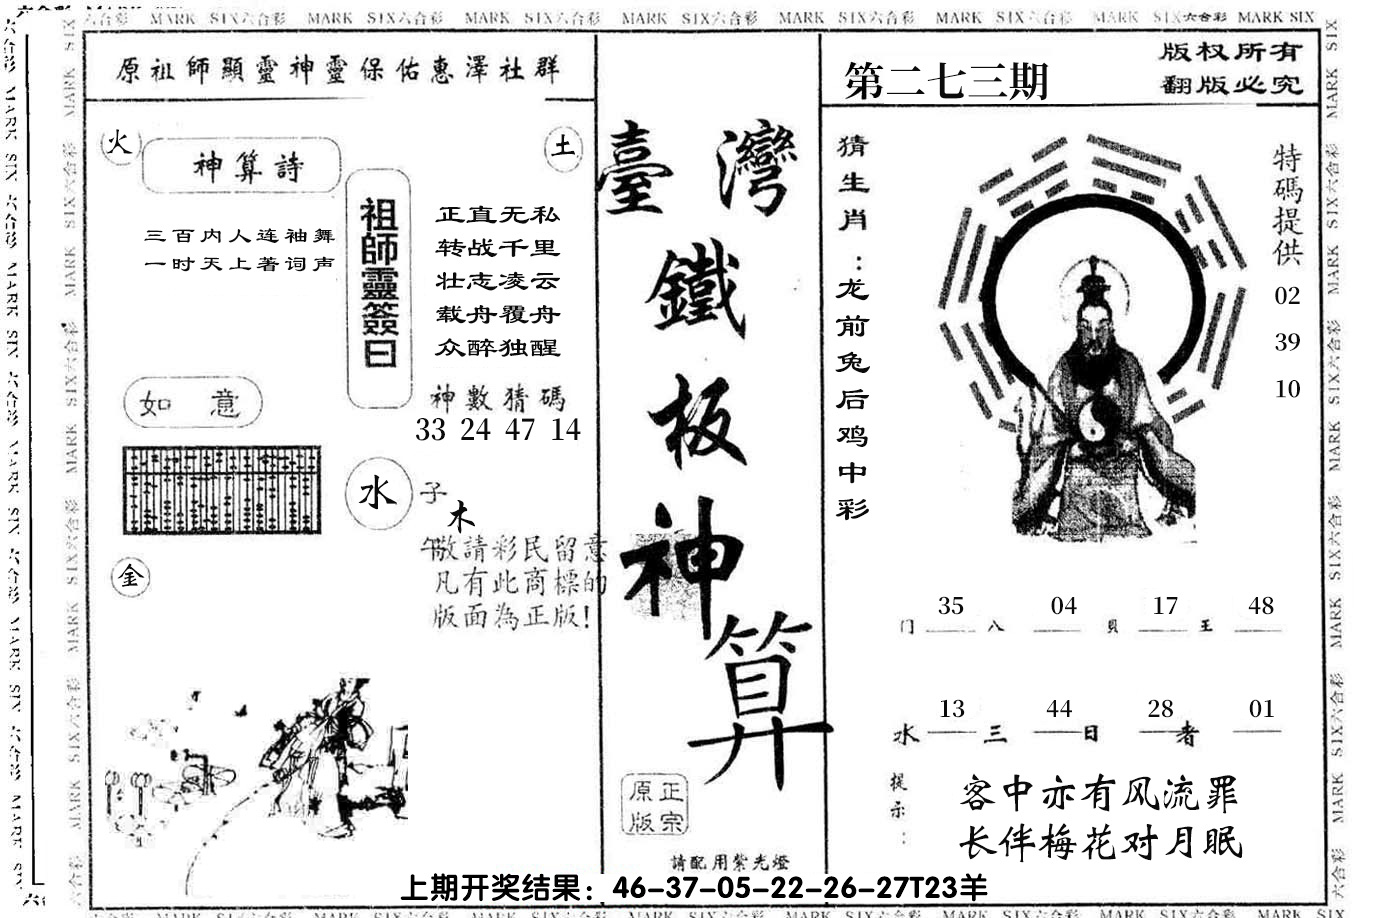 六合彩 MARK SIX六合彩 MARK SIX六合彩 MARK SIX六合彩 MARK SIX六合彩 MARK SIX六合彩 MARK SIX六合彩 MARK SIX六合彩 MARK SIX
原祖師顯靈神靈保佑惠澤社群
火
土
神算詩
三百内人连袖舞
一时天上著词声
祖師靈簽曰
正直无私
转战千里
壮志凌云
载舟覆舟
众醉独醒
神數猜碼
33 24 47 14
如 意
水
子
木
午
敬請彩民留意
凡有此商標的
版面為正版!
金
臺灣
鐵
板
神
算
正宗
原版
請配用紫光燈
第二七三期
版权所有
翻版必究
猜生肖:龙前兔后鸡中彩
特碼提供
02
39
10
35 04 17 48
门 八 貝 王
13 44 28 01
水 三 日 者
提示:
客中亦有风流罪
长伴梅花对月眠
上期开奖结果：46-37-05-22-26-27T23羊